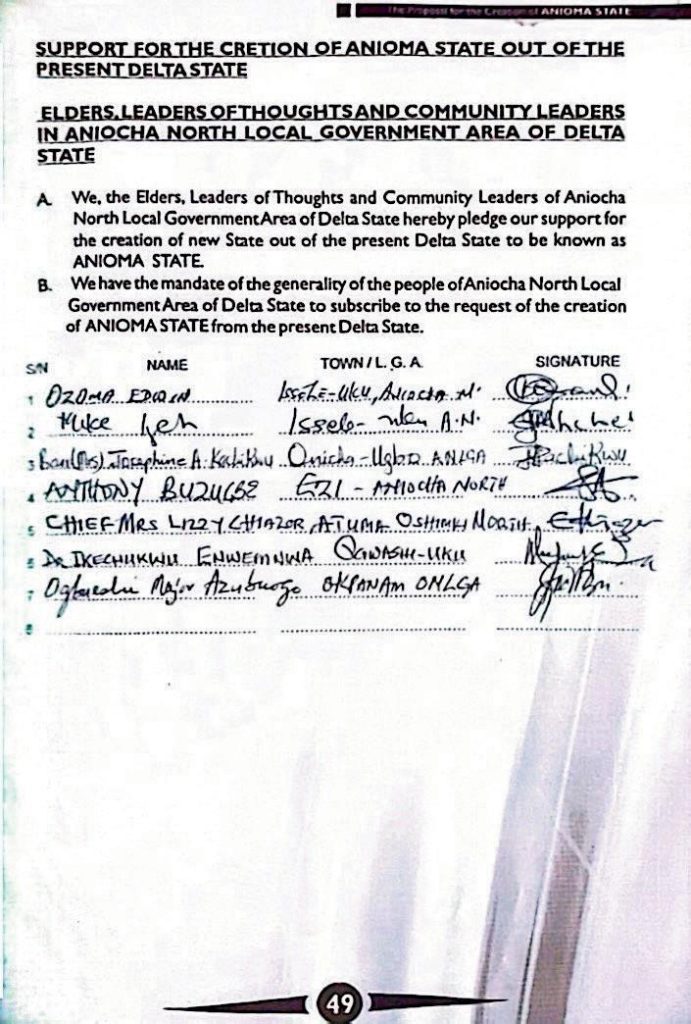 The Proposal for the Creation of ANIOMA STATE
SUPPORT FOR THE CRETION OF ANIOMA STATE OUT OF THE
PRESENT DELTA STATE
ELDERS, LEADERS OF THOUGHTS AND COMMUNITY LEADERS
IN ANIOCHA NORTH LOCAL GOVERNMENT AREA OF DELTA
STATE
A. We, the Elders, Leaders of Thoughts and Community Leaders of Aniocha
North Local Government Area of Delta State hereby pledge our support for
the creation of new State out of the present Delta State to be known as
ANIOMA STATE.
B. We have the mandate of the generality of the people of Aniocha North Local
Government Area of Delta State to subscribe to the request of the creation
of ANIOMA STATE from the present Delta State.
S/N NAME TOWN / L. G. A. SIGNATURE
1 OZOMA EDWIN Issele-UKU, ANIOCHA N.
2 Mike Issele-uku A.N.
3 Josephine A. Onicha-Ugbo ANLGA
4 ANTHONY BUZUGBE EZI - ANIOCHA NORTH
5 CHIEF MRS LIZZY CHIAZOR, ATUMA OSHIMILI NORTH
6 DR IKECHUKWU ENWEMNWA OGWASHI-UKU
7 Major Azubuogo OKPANAM ONLGA
8
49